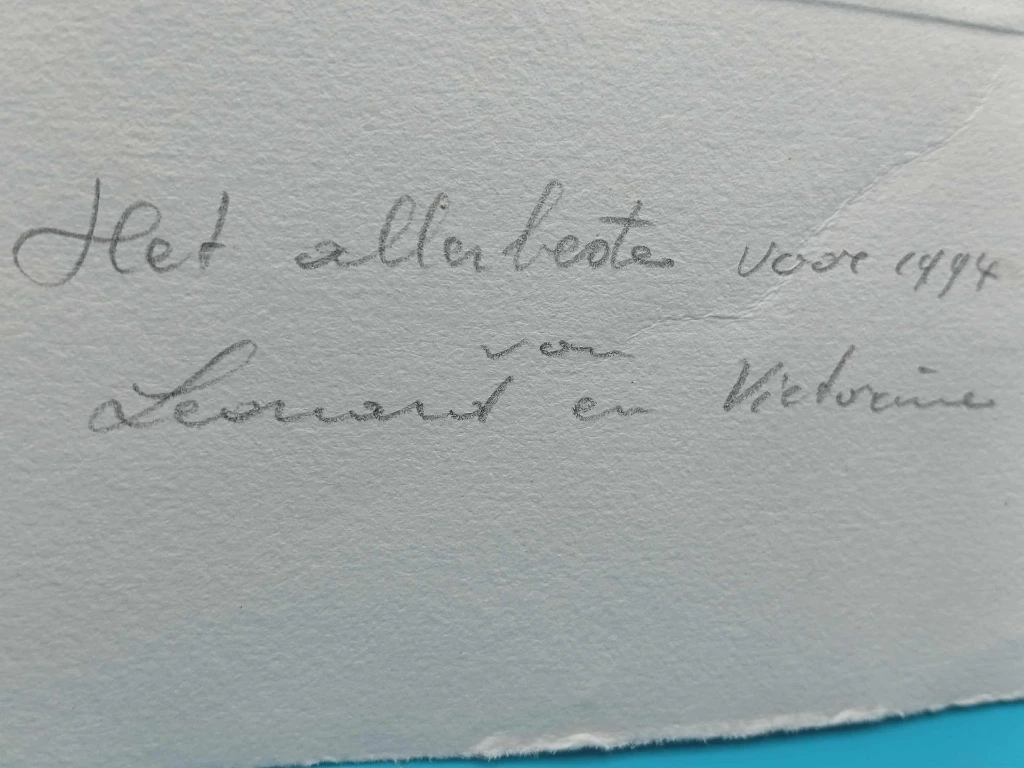 Het allerbeste voor 1994
van
Leonard en Victorine